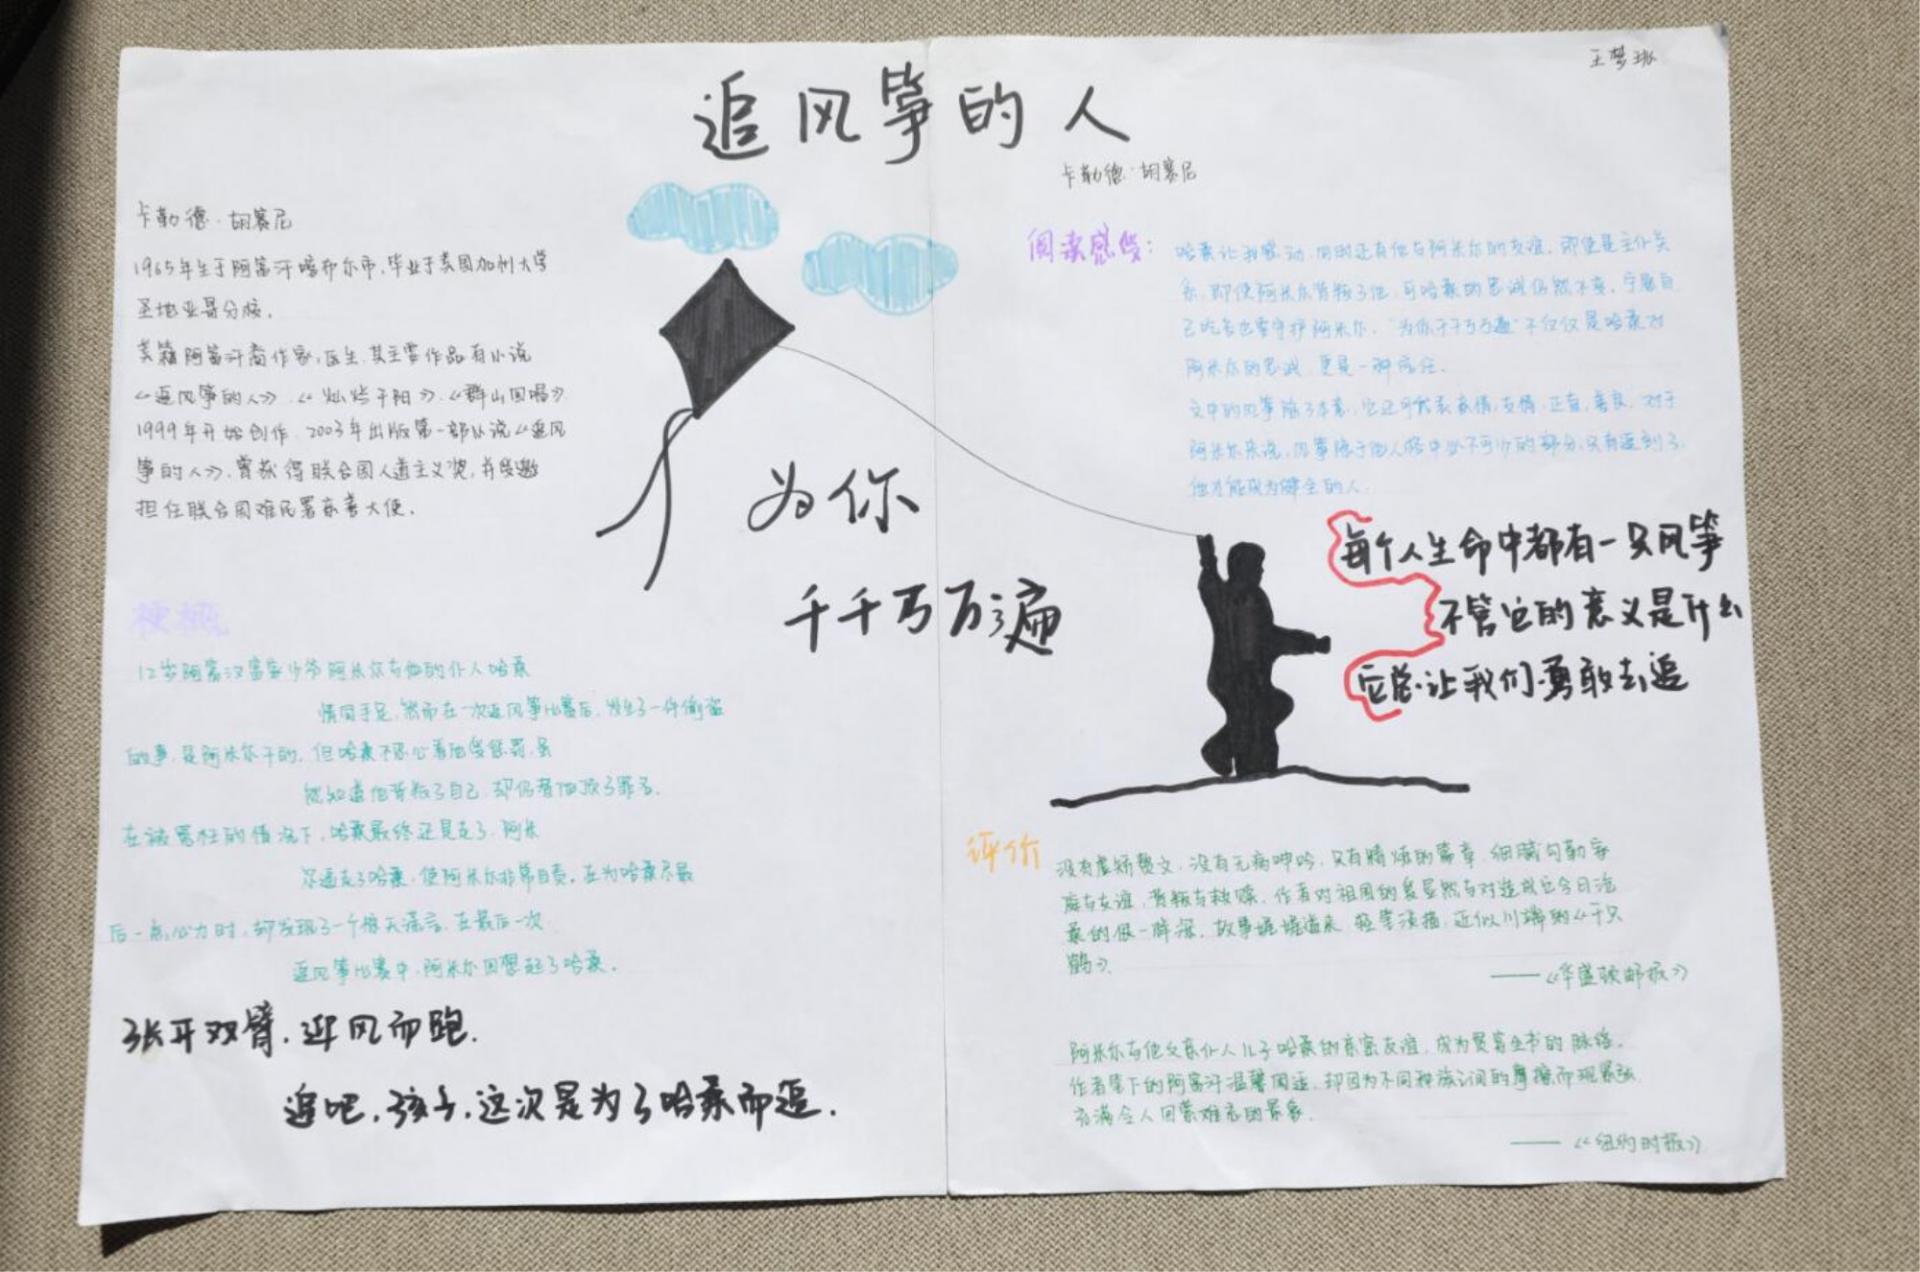 追风筝的人
卡勒德·胡赛尼
卡勒德·胡赛尼
1965年生于阿富汗喀布尔市,毕业于美国加州大学
圣地亚哥分校。
美籍阿富汗裔作家,医生,其主要作品有小说
《追风筝的人》.《灿烂千阳》.《群山回唱》
1999年开始创作.2003年出版第一部小说《追风
筝的人》,曾获得联合国人道主义奖,并受邀
担任联合国难民署亲善大使.
为你
千千万万遍
梗概
12岁阿富汉富家少爷阿米尔与他的仆人哈桑
情同手足,然而在一次追风筝比赛后,发生了一件偷盗
的事,是阿米尔干的,但哈桑不忍心看他受惩罚,虽
然知道他背叛了自己,却仍替他顶了罪名.
在被冤枉的情况下,哈桑最终还是走了.阿米
尔逼走了哈桑,使阿米尔非常自责。在为哈桑尽最
后一点心力时,却发现了一个惊天谎言,在最后一次
追风筝比赛中,阿米尔回想起了哈桑.
张开双臂.迎风而跑.
追吧,孩子,这次是为了哈桑而追.
阅读感受:
哈桑让我感动,同时还有他与阿米尔的友谊.即使是主仆关
系,即使阿米尔背叛了他,可哈桑的忠诚仍然不变,宁愿自
己吃苦也要守护阿米尔."为你千千万万遍"不仅仅是哈桑对
阿米尔的忠诚,更是一种信任.
文中的风筝除了本意,它还可代表亲情,友情,正直,善良.对于
阿米尔来说,风筝隐于他人格中必不可少的部分,只有追到了,
他才能成为健全的人.
每个人生命中都有一只风筝
不管它的意义是什么
它总让我们勇敢去追
评价
没有虚矫赘文,没有无病呻吟,只有精炼的篇章,细腻勾勒家
庭与友谊,背叛与救赎,作者对祖国的爱显然与对造就它今日沧
桑的恨一样深,故事娓娓道来,轻笔淡描,近似川端的《千只
鹤》.
——《华盛顿邮报》
阿米尔与他父亲仆人儿子哈桑的亲密友谊,成为贯穿全书的脉络.
作者笔下的阿富汗温馨闲适,却因为不同种族之间的摩擦而现紧张.
充满令人回萦难忘的景象.
——《纽约时报》